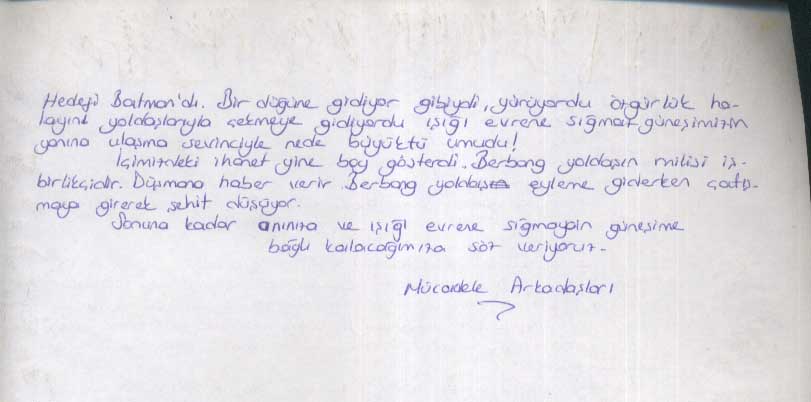 Hedefi Batman'dı. Bir düğüne gidiyor gibiydi, yürüyordu özgürlük ha-
layını yoldaşlarıyla çekmeye gidiyordu ışığı evrene sığmaz güneşimizin
yanına ulaşma sevinciyle nede büyüktü umudu!
İçimizdeki ihanet yine boy gösterdi. Berbang yoldaşın milisi iş-
birlikçidir. Düşmana haber verir. Berbang yoldaş eyleme giderken çatış-
maya girerek şehit düşüyor.
Sonuna kadar anınıza ve ışığı evrene sığmayan güneşime
bağlı kalacağımıza söz veriyoruz.
Mücadele Arkadaşları